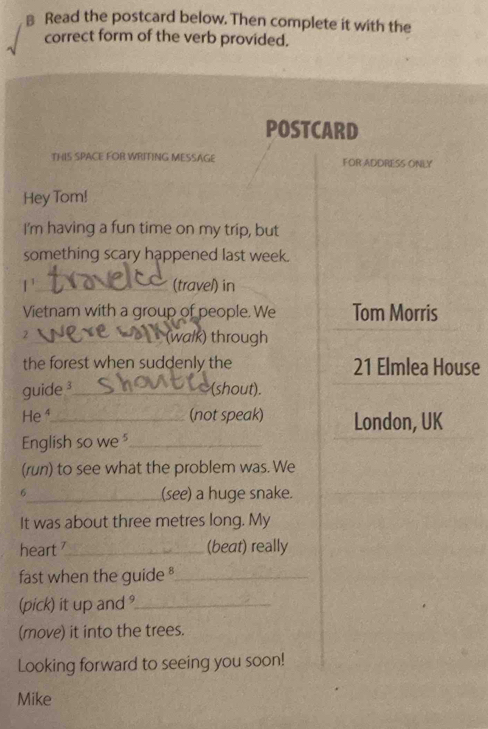 B Read the postcard below. Then complete it with the
correct form of the verb provided.
POSTCARD
THIS SPACE FOR WRITING MESSAGE
FOR ADDRESS ONLY
Hey Tom!
I'm having a fun time on my trip, but
something scary happened last week.
I ¹ traveled (travel) in
Vietnam with a group of people. We
² were walking (walk) through
the forest when suddenly the
guide ³ shouted (shout).
He ⁴____________ (not speak)
English so we ⁵____________
(run) to see what the problem was. We
⁶____________ (see) a huge snake.
It was about three metres long. My
heart ⁷____________ (beat) really
fast when the guide ⁸____________
(pick) it up and ⁹____________
(move) it into the trees.
Looking forward to seeing you soon!
Mike
Tom Morris
21 Elmlea House
London, UK